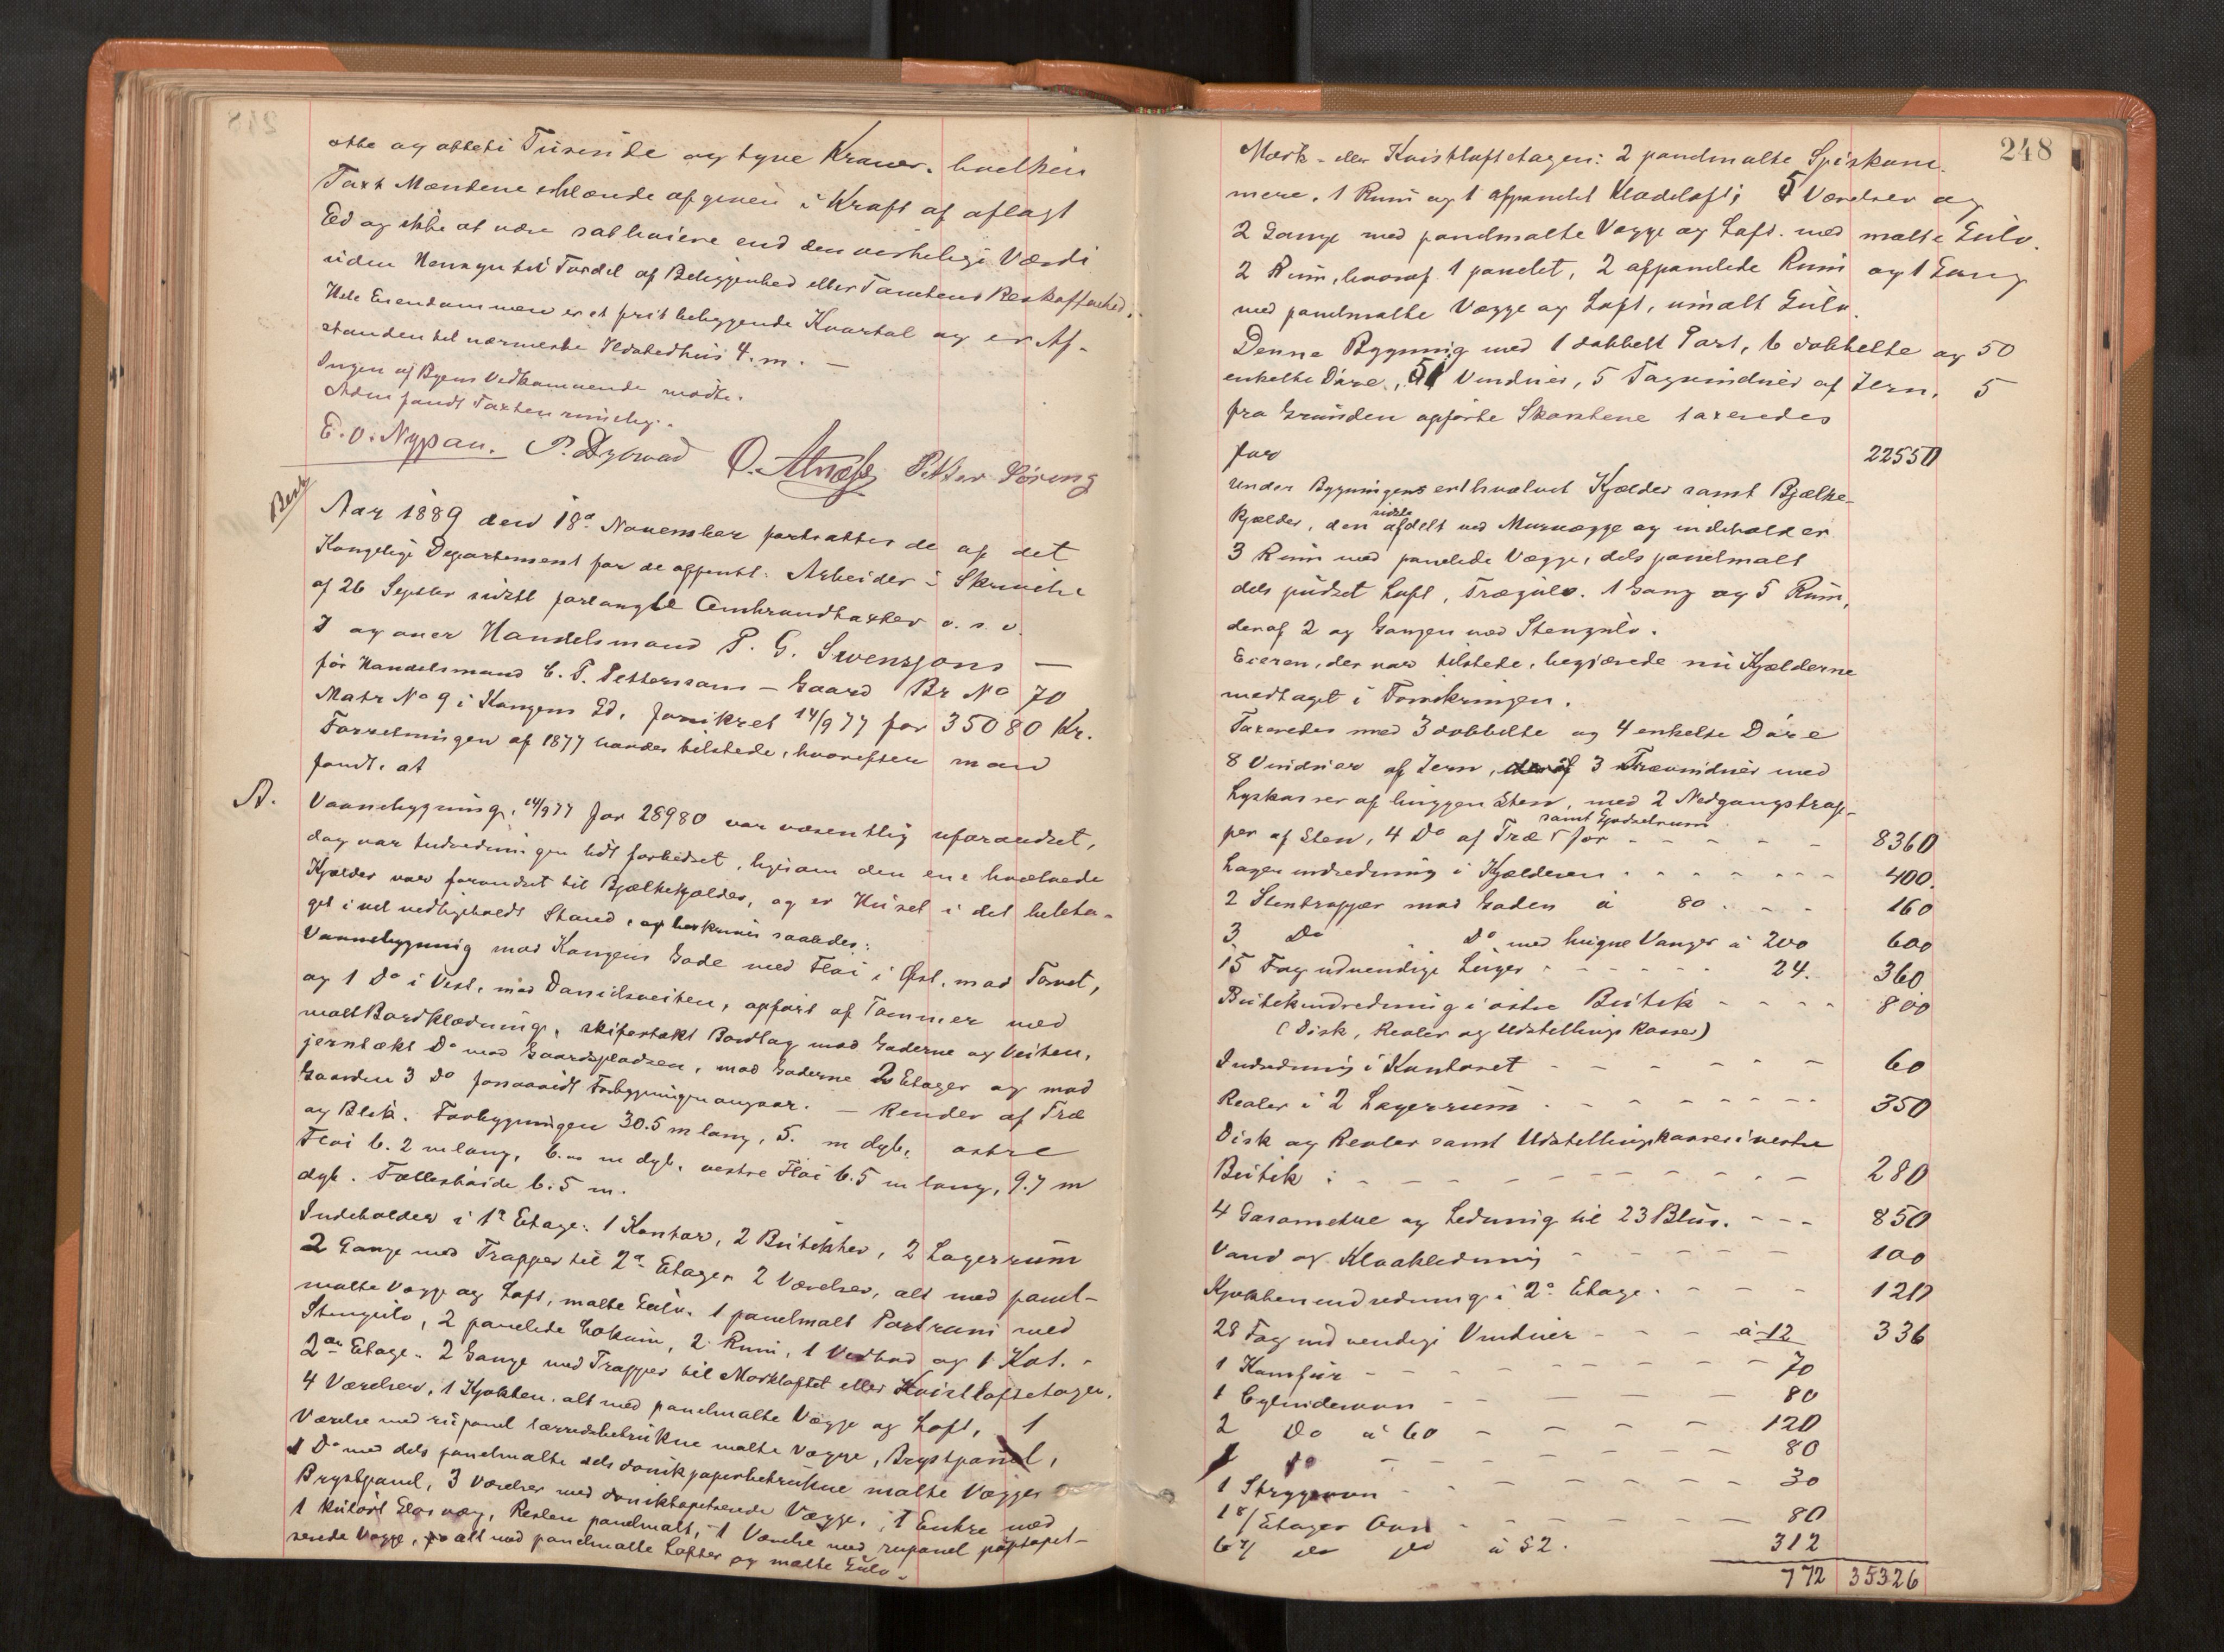 otte og otteti Tusende og tyve Kroner, hvelken
Taxt Mændene erklærede afgiven i Kraft af aflagt
Ed og ikke at være sat høiere end den virkelige Værdi
uden Hensyn til Fordel af Beliggenhed eller Tomtens Beskaffenhed.
Hele Eiendommen er et frit beliggende Kvartal og er Af-
standen til nærmeste Ildstedhus 4. m. —
Ingen af Byens Vedkommende mødte.
Adm fandt Taxten rimelig.
E. O. Nypan. P. Dybwad O. Alnæss Petter Löseng
Besk
Aar 1889 den 18de November fortsattes de af det
Kongelige Departement for de offentl. Arbeider i Skrivelse
af 26 Septbr sidstl forlangte Ombrandtaxter o. s. v.
I og over Handelsmand P. G. Swensons —
før Handelsmand C. P. Petterssons — Gaard Br No 70
Matr No 9 i Kongens Gd. forsikret 14/9 77 for 35080 Kr.
Forretningen af 1877 havdes tilstede, hvorefter man
fandt, at
A. Vaanebygning, 14/9 77 for 28980 var væsentlig uforandret,
dog var Indredningen lidt forbedret, ligesom den ene hvælvede
Kjælder var forandret til Bjælkekjælder, og er Huset i det heleta-
get i vel vedligeholdt Stand, og beskrives saaledes:
Vaanebygning mod Kongens Gade med Fløi i Øst, mod Torvet,
og 1 Do i Vest, mod Danielsveiten, opført af Tømmer med
malt Bordklædning, skifertækt Bordtag mod Gaderne og Veiten,
jerntækt Do mod Gaardspladsen, mod Gaderne 2 Etager og mod
Gaarden 3 Do forsaavidt Forbygningen angaar. — Render af Træ
og Blik. Forbygningen 30.5 m lang, 5. m dyb, østre
Fløi 6.2 m lang, 6. m dyb, vestre Fløi 6.5 m lang, 9.7 m
dyb. Fælleshøide 6.5 m.
Indeholder i 1ste Etage: 1 Kontor, 2 Butikker, 2 Lagerrum
2 Gange med Trapper til 2den Etage, 2 Værelser, alt med panel-
malte Vægge og Loft, malte Gulv. 1 panelmalt Portrum med
Stengulv, 2 panelede Lokum, 2 Rum, 1 Vedbod og 1 Kot. -
2den Etage. 2 Gange med Trapper til Mørkloftet eller Kvistloftetagen.
4 Værelser, 1 Kjøkken, alt med panelmalte Vægge og Loft, 1
Værelse med rupanel lærredsbetrukne malte Vægge, Brystpanel,
1 Do med dels panelmalte dels donikpapirbetrukne malte Vægger
Brystpanel, 3 Værelser med doniktapetserede Vægge, 1 Entre med
1 kulørt Glasvæg, Resten panelmalt, 1 Værelse med rupanel paptapet-
serede Vægge, alt med panelmalte Lofter og malte Gulv.
248
Mørk- eller Kvistloftetagen: 2 panelmalte Spiskam-
mere, 1 Rum og 1 afpanelet Klædeloft; 5 Værelser og
2 Gange med panelmalte Vægge og Loft. med malte Gulv.
2 Rum, hvoraf 1 panelet, 2 afpanelede Rum og 1 Gang
med panelmalte Vægge og Loft, umalt Gulv.
Denne Bygning med 1 dobbelt Port, 6 dobbelte og 50
enkelte Døre, 51 Vinduer, 5 Tagvinduer af Jern, 5
fra Grunden opførte Skorstene taxeredes
for 22550
Under Bygningens er 1 hvælvet Kjælder samt Bjælke-
kjælder, den sidste afdelt ved Murvægge og indeholder
3 Rum med panelede Vægge, dels panelmalt
dels pudset Loft, Trægulv. 1 Gang og 5 Rum,
deraf 2 og Gangen med Stengulv.
Eieren, der var tilstede, begjærede nu Kjælderne
medtaget i Forsikringen.
Taxeredes med 3 dobbelte og 4 enkelte Døre
8 Vinduer af Jern, 3 Trævinduer med
Lyskasser af huggen Sten, med 2 Nedgangstrap-
per af Sten, 4 Do af Træ samt Gjødselrum for - - - - - 8360
Lagerindredning i Kjælderen - - - - - - - 400.
2 Stentrapper mod Gaden à 80 - - - 160
3 Do Do med hugne Vanger à 200 600
15 Fag udvendige Luger - - - - - 24. 360
Butikindredning i østre Butik - - - - 800
(Disk, Reoler og Udstillings Kasser)
Indredning i Kontoret - - - - - - 60
Reoler i 2 Lagerrum - - - - - - - 350
Disk og Reoler samt Udstillingskasser i vestre
Butik : - - - - - - - - - - 280
4 Gasometre og Ledning til 23 Blus. - - - 850
Vand og Kloakledning - - - - - - 100
Kjøkkenindredning i 2den Etage. - - - - 120
28 Fag indvendige Vinduer - - - à 12 336
1 Komfur - - - - - - - - - 70
1 Cylinderovn - - - - - - - 80
2 Do à 60 - - - - - 120
1 Do - - - - - - - 80
1 Strygeovn - - - - - - - - 30
1 Etages Ovn - - - - - - - 80
6 do do à 52. 312
772 35326